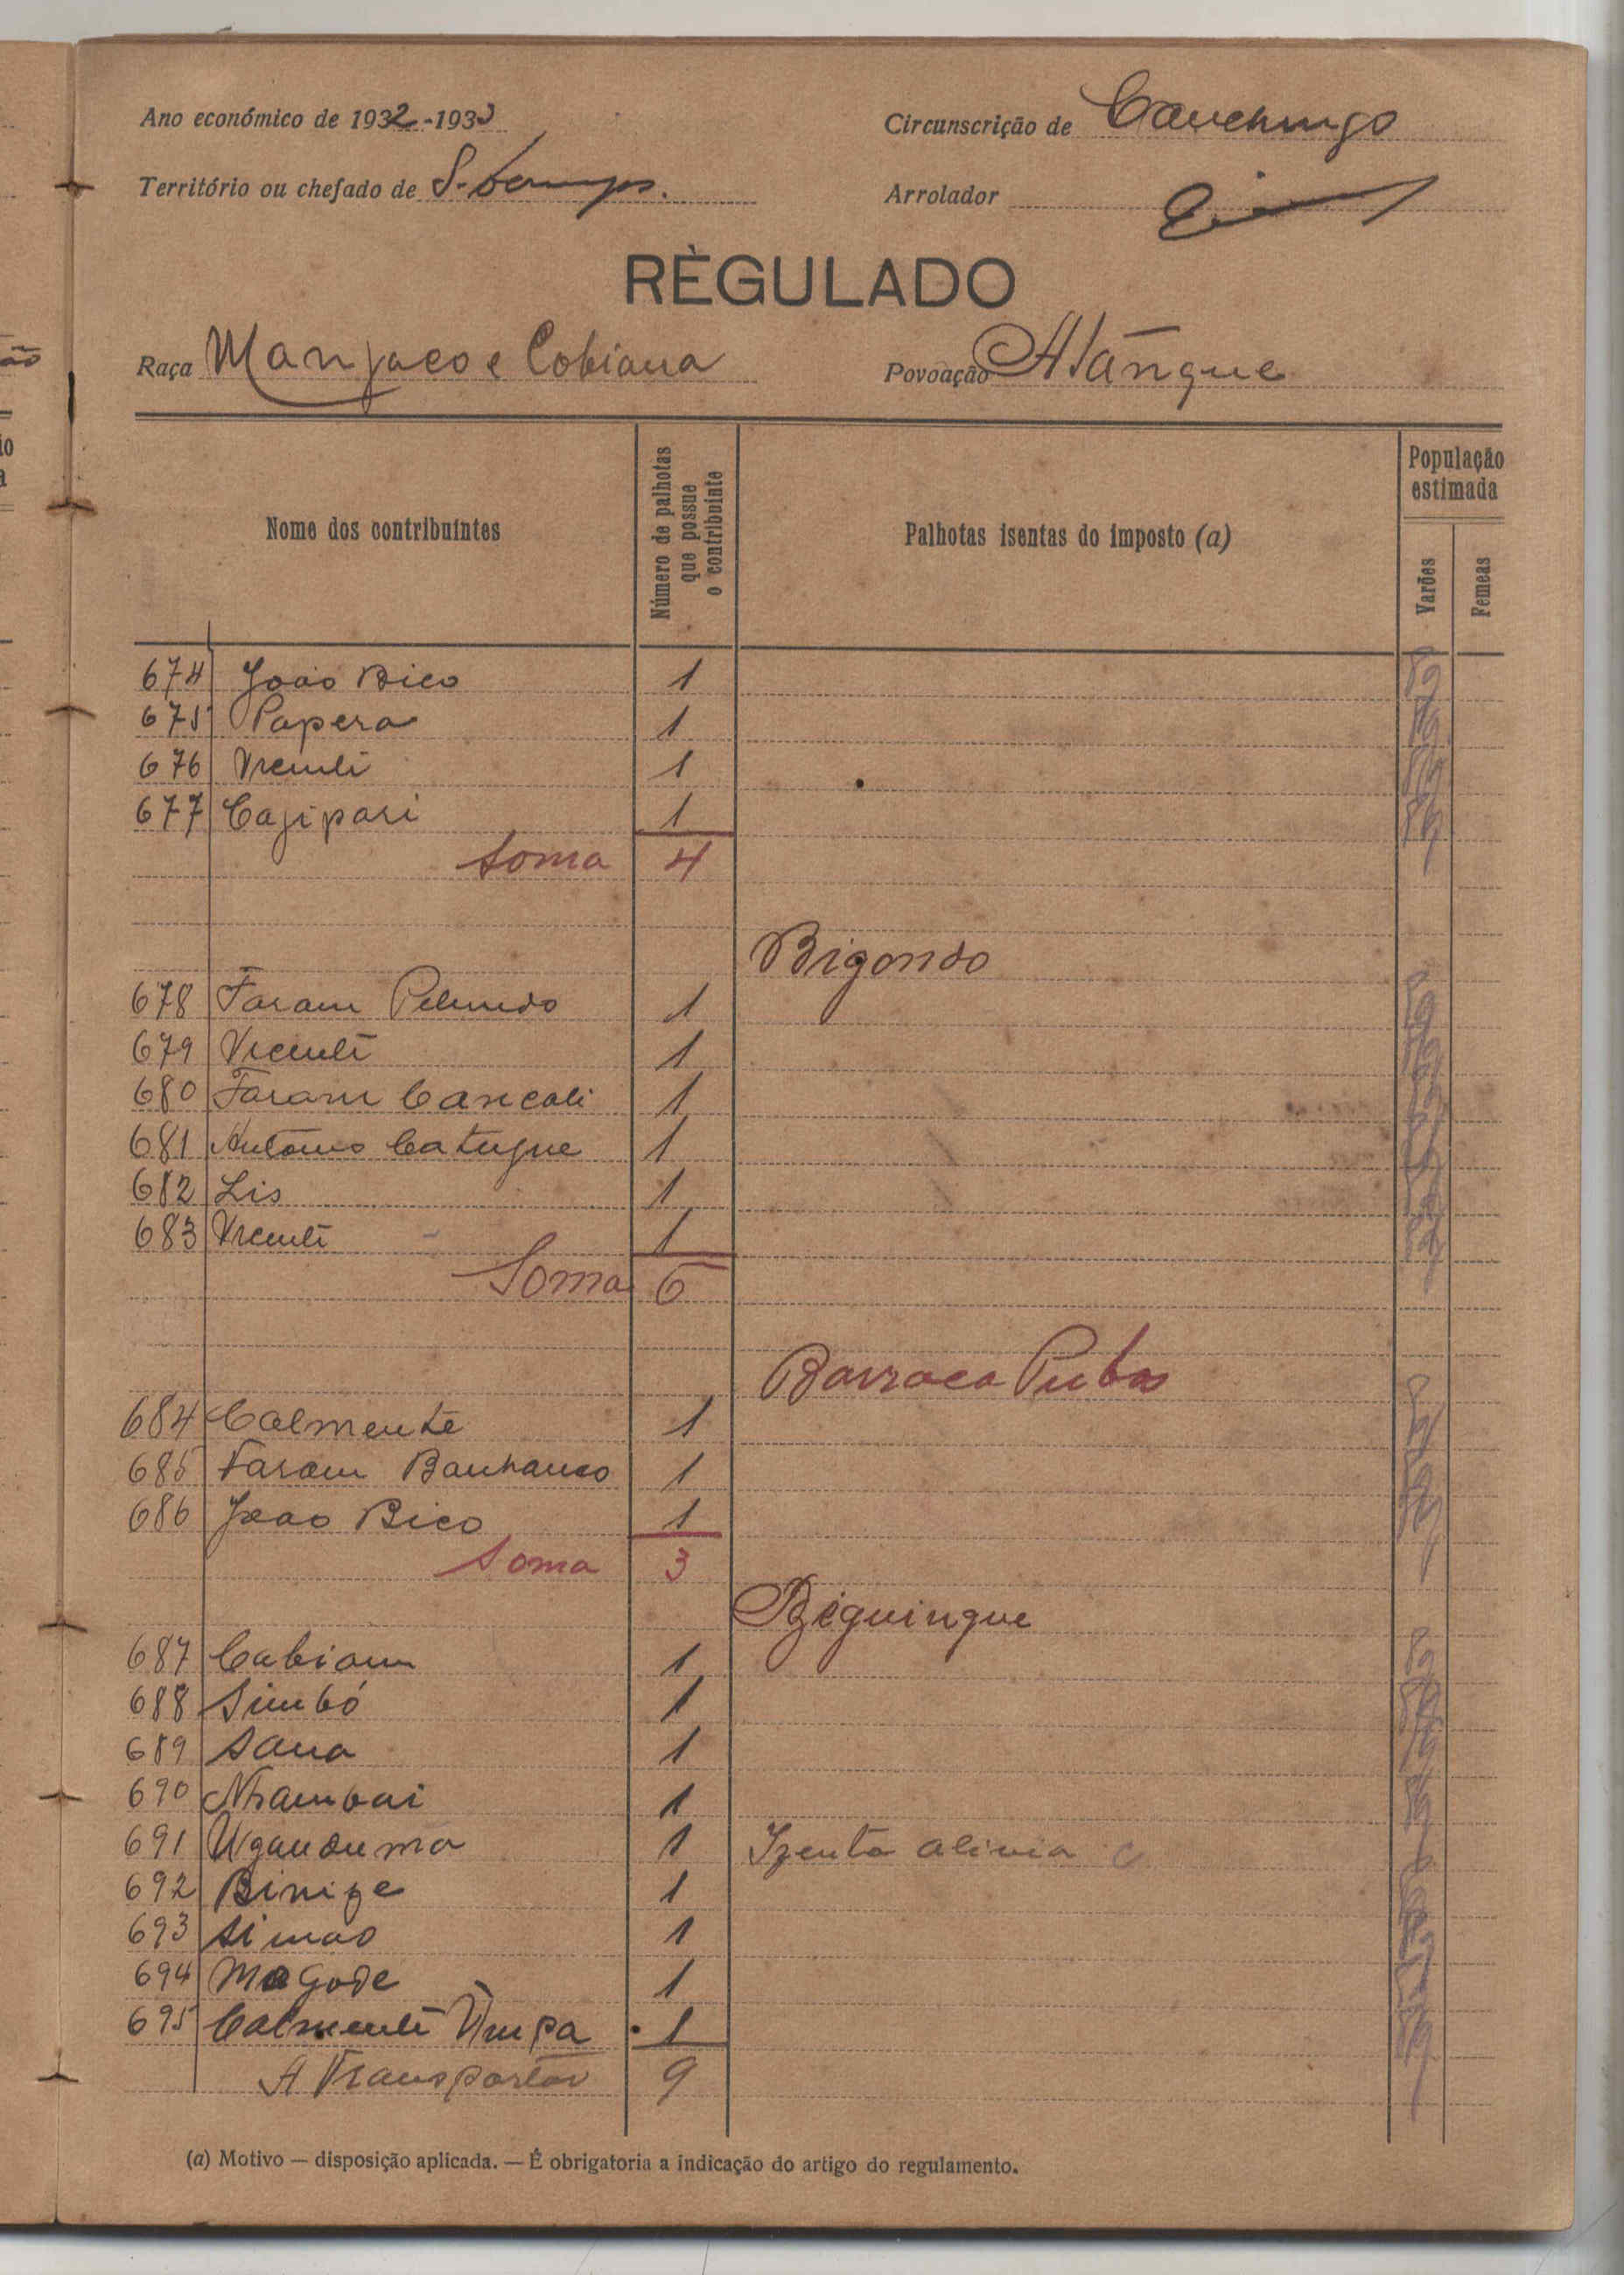 Ano económico de 1932-1933
Circunscrição de Canchungo
Território ou chefado de S. Domingos.
Arrolador
RÈGULADO
Raça Manjaco e Cobiana
Povoação
Nome dos contribuintes
Número de palhotas que possue o contribuinte
Palhotas isentas do imposto (a)
População estimada
Varões
Femeas
674 João Bico 1
675 Papera 1
676 Vicenti 1
677 Cajipari 1
Soma 4
Bigondo
678 Faram Pelundo 1
679 Vicenti 1
680 Faram Cancali 1
681 António Catugue 1
682 Lis 1
683 Vicenti 1
Soma 6
Barraca Pubas
684 Calmente 1
685 Faram 1
686 Joao Bico 1
Soma 3
Beguingue
687 Cabiam 1
688 Simbó 1
689 Sana 1
690 Nhambai 1
691 Uganduma 1 Izenta
692 1
693 Simao 1
694 Magode 1
695 Calmenti 1
A Transportar 9
(a) Motivo — disposição aplicada. — É obrigatoria a indicação do artigo do regulamento.